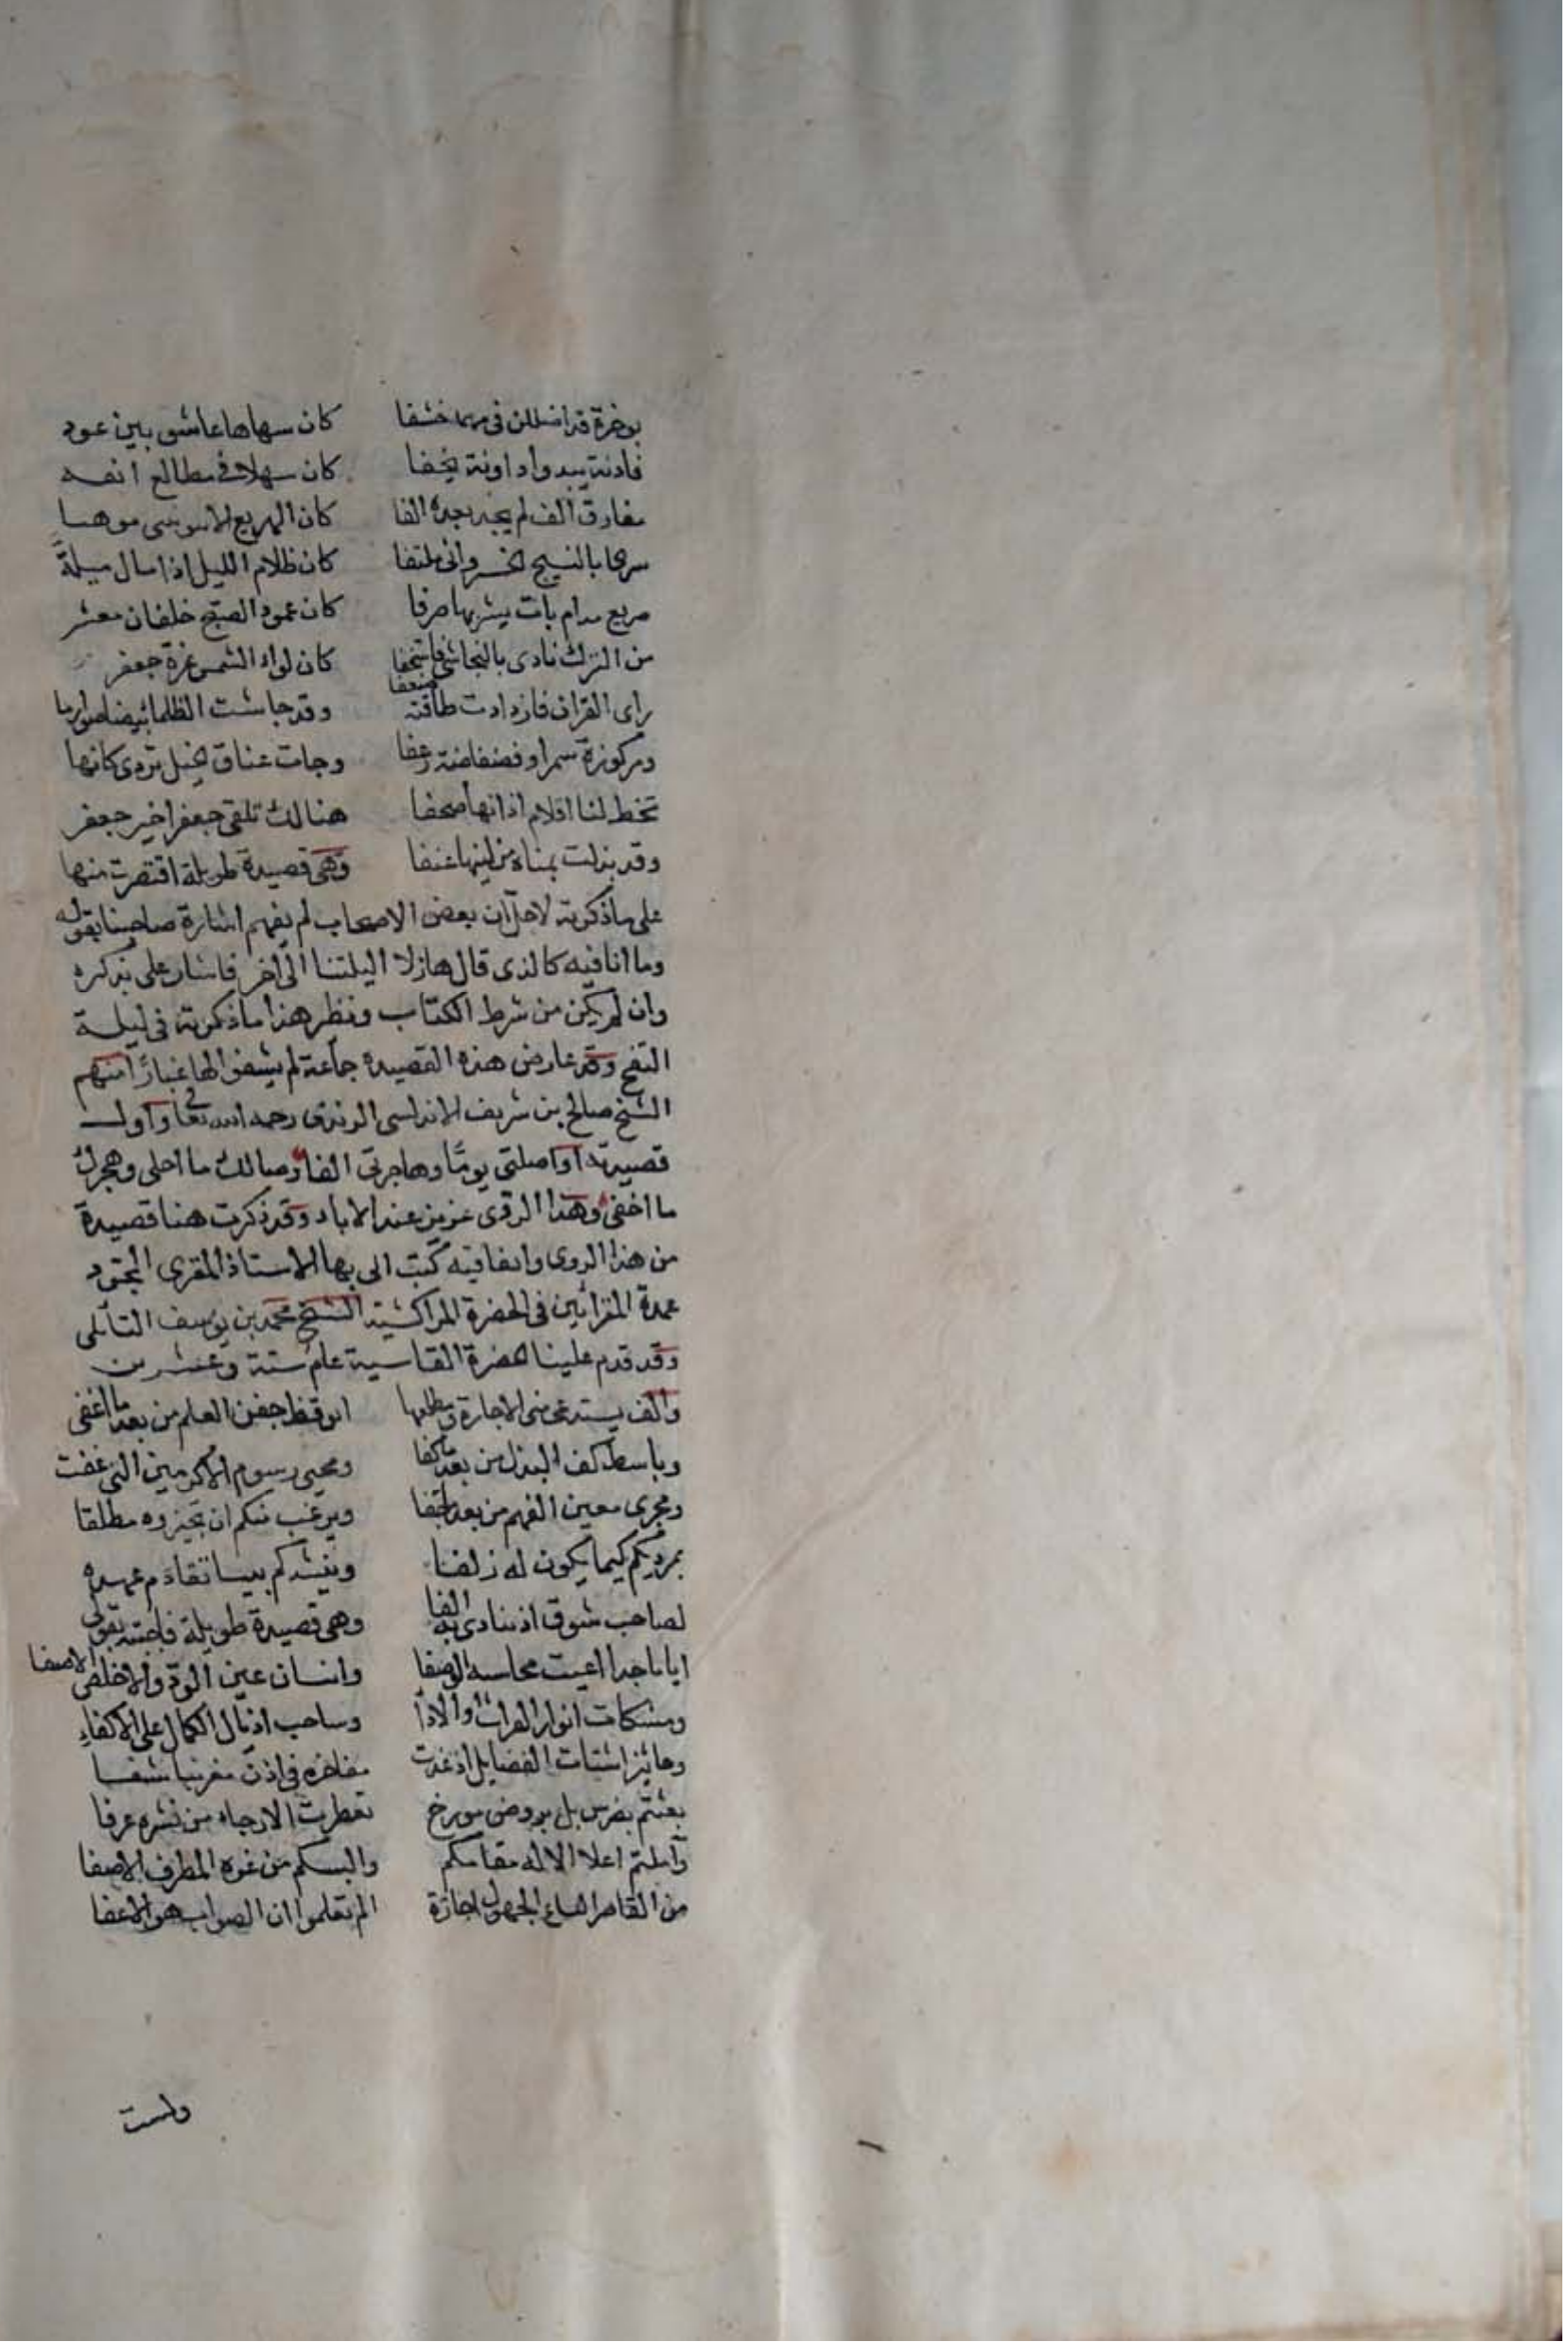 بوجرة قد اضللن في مهمه خشفا كان سهاها عاشق بين عود
فاونة يبدوا واونة يخفا كان سهلا في مطالع افقه
مفارق الف لم يجد بعده الفا كان الهزيع الابنوسي موهنا
سرى بالنسيج الخسرواني ملتفا كان ظلام الليل اذا مال ميلة
صريع مدام بات يشربها صرفا كان عمود الصبح خلقان معشر
من الترك نادى بالنجاشي فاستخفا كان لواء الشمس غرة جعفر
راى القران فازدادت طلاقته ضعفا وقد جاشت الظلما بيضا صوارما
ومركوزة سمرا وفضفاضة زغفا وجات عتاق الخيل تردى كانها
تخط لنا اقلام اذانها صحفا هنالك تلقى جعفرا خير جعفر
وقد بدلت يمناه من لينها عنفا وهي قصيدة طويلة اقتصرت منها
على ما ذكرته لاجل ان بعض الاصحاب لم يفهم اشارة صاحبنا بقوله
وما انا فيه كالذي قال هازلا اليلتنا الى اخر فاشار على بذكره
وان لم يكن من شرط الكتاب ونظر هذا ما ذكرته في ليلة
النفح وقد عارض هذه القصيده جماعة لم يشقوا لها غبارا منهم
الشيخ صالح بن شريف الاندلسي الرندي رحمه الله تعا واول
قصيدته اواصلتي يوما وهاجرتي الفا وصالك ما احلى وهجرك
ما اخفى وهذا الروى عزيز عند الادباء وقد ذكرت هنا قصيدة
من هذا الروى والقافيه كتب الى بها الاستاذ المقرى المجود
عمدة المقرائين في الحضرة المراكشية الشيخ محمد بن يوسف التاملي
وقد قدم علينا لحضرة الفاسية عام ستة وعشرين
والف يستدعى منى الاجازة ومطلعها اموقظ جفن العلم من بعد ما اغفى
وباسط كف البذل من بعد ما كفا ومحيى رسوم الاكرمين التى عفت
ومجرى معين الفهم من بعد ما جفا ويرغب منكم ان تجيزوه مطلقا
بمرويكم كيما يكون له زلفا وينشدكم بيتا تقادم عهده
لصاحب شوق اذ ينادى به الفا وهي قصيدة طويلة فاجبته بقولى
ايا ماجدا اعيت محاسنه الوصفا وانسان عين الود والاخلص الاصفا
ومشكات انوار القرات والادا وساحب اذيال الكمال على الاكفاء
وحائز اشتات الفضايل اذ غدت مفاخره في اذن مغربنا شنفا
بعثتم بغرس بل بروض مورخ تعطرت الارجاء من نشره عرفا
وآملتم اعلا الاله مقامكم والبسكم من عزه المطرف الاصفا
من القاصر الباع الجهول اجازة الم تعلموا ان الصواب هو الاعفا
ولست